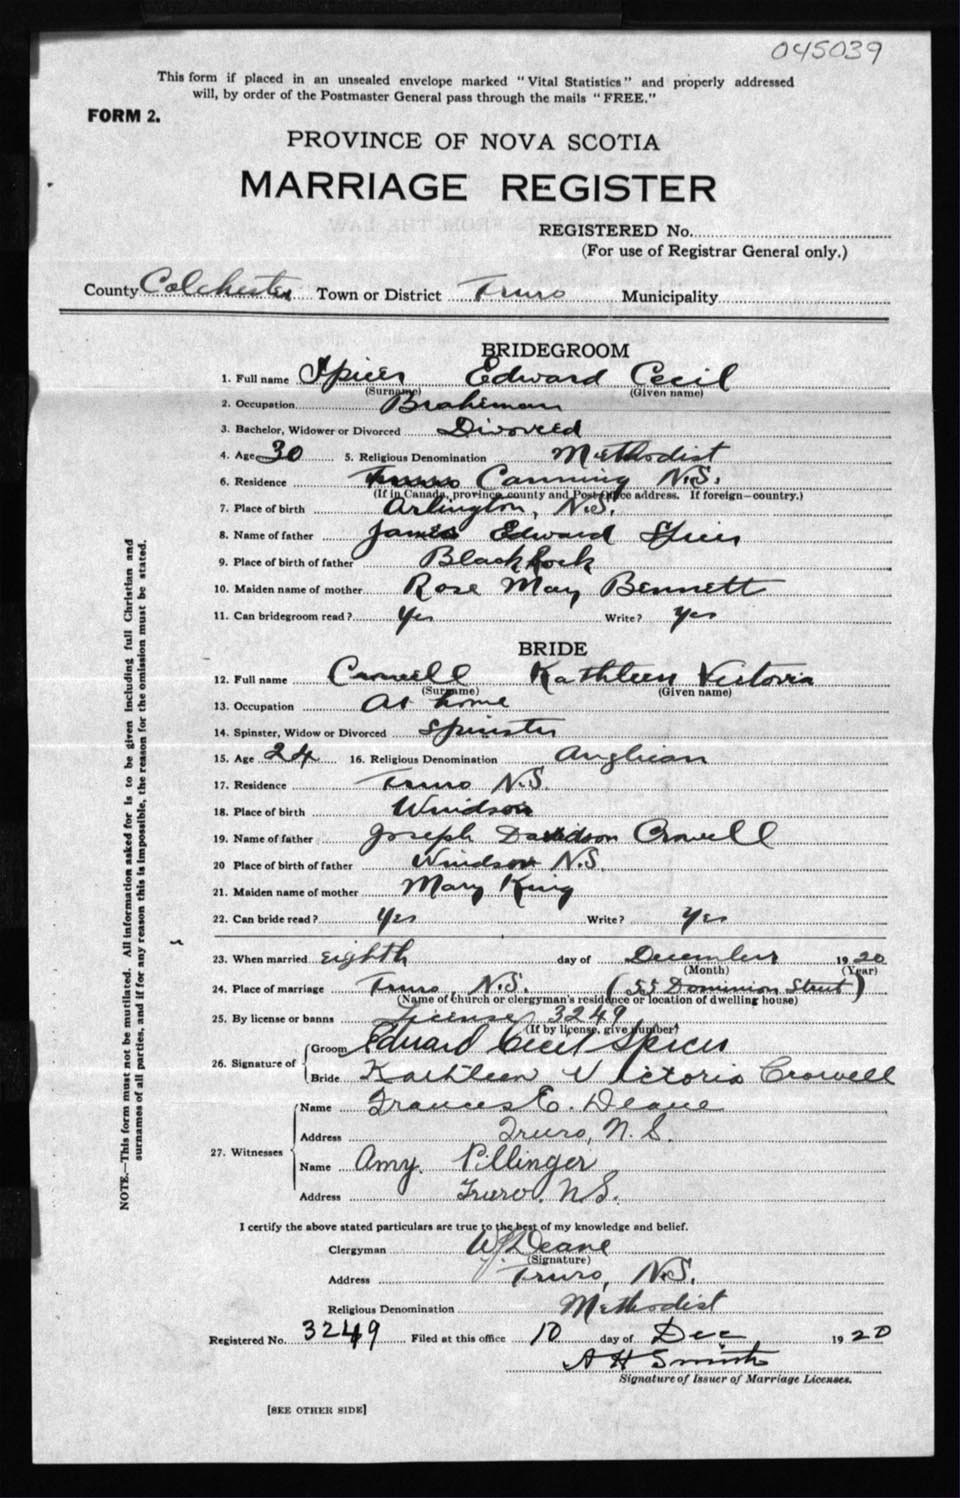 045039
This form if placed in an unsealed envelope marked "Vital Statistics" and properly addressed
will, by order of the Postmaster General pass through the mails "FREE."
FORM 2.
PROVINCE OF NOVA SCOTIA
MARRIAGE REGISTER
REGISTERED No.
(For use of Registrar General only.)
County Colchester Town or District Truro Municipality
BRIDEGROOM
1. Full name Spicer Edward Cecil
(Surname) (Given name)
2. Occupation Brakeman
3. Bachelor, Widower or Divorced Divorced
4. Age 30 5. Religious Denomination Methodist
6. Residence Canning N.S.
(If in Canada, province, county and Post Office address. If foreign—country.)
7. Place of birth Arlington, N.S.
8. Name of father James Edward Spicer
9. Place of birth of father Black Rock
10. Maiden name of mother Rose May Bennett
11. Can bridegroom read? Yes Write? Yes
BRIDE
12. Full name Crowell Kathleen Victoria
(Surname) (Given name)
13. Occupation At home
14. Spinster, Widow or Divorced Spinster
15. Age 24 16. Religious Denomination Anglican
17. Residence Truro N.S.
18. Place of birth Windsor
19. Name of father Joseph Davidson Crowell
20 Place of birth of father Windsor N.S.
21. Maiden name of mother Mary King
22. Can bride read? Yes Write? Yes
23. When married eighth day of December 1920
(Month) (Year)
24. Place of marriage Truro, N.S. (55 Dominion Street)
(Name of church or clergyman's residence or location of dwelling house)
25. By license or banns License 3249
(If by license, give number)
26. Signature of Groom Edward Cecil Spicer
Bride Kathleen Victoria Crowell
27. Witnesses
Name Frances E. Deane
Address Truro, N.S.
Name Amy Pillinger
Address Truro. N.S.
I certify the above stated particulars are true to the best of my knowledge and belief.
Clergyman WJ Deane
(Signature)
Address Truro, N.S.
Religious Denomination Methodist
Registered No. 3249 Filed at this office 10 day of Dec 1920
A H Smith
Signature of Issuer of Marriage Licenses.
[SEE OTHER SIDE]
NOTE.—This form must not be mutilated. All information asked for is to be given including full Christian and
surnames of all parties, and if for any reason this is impossible, the reason for the omission must be stated.